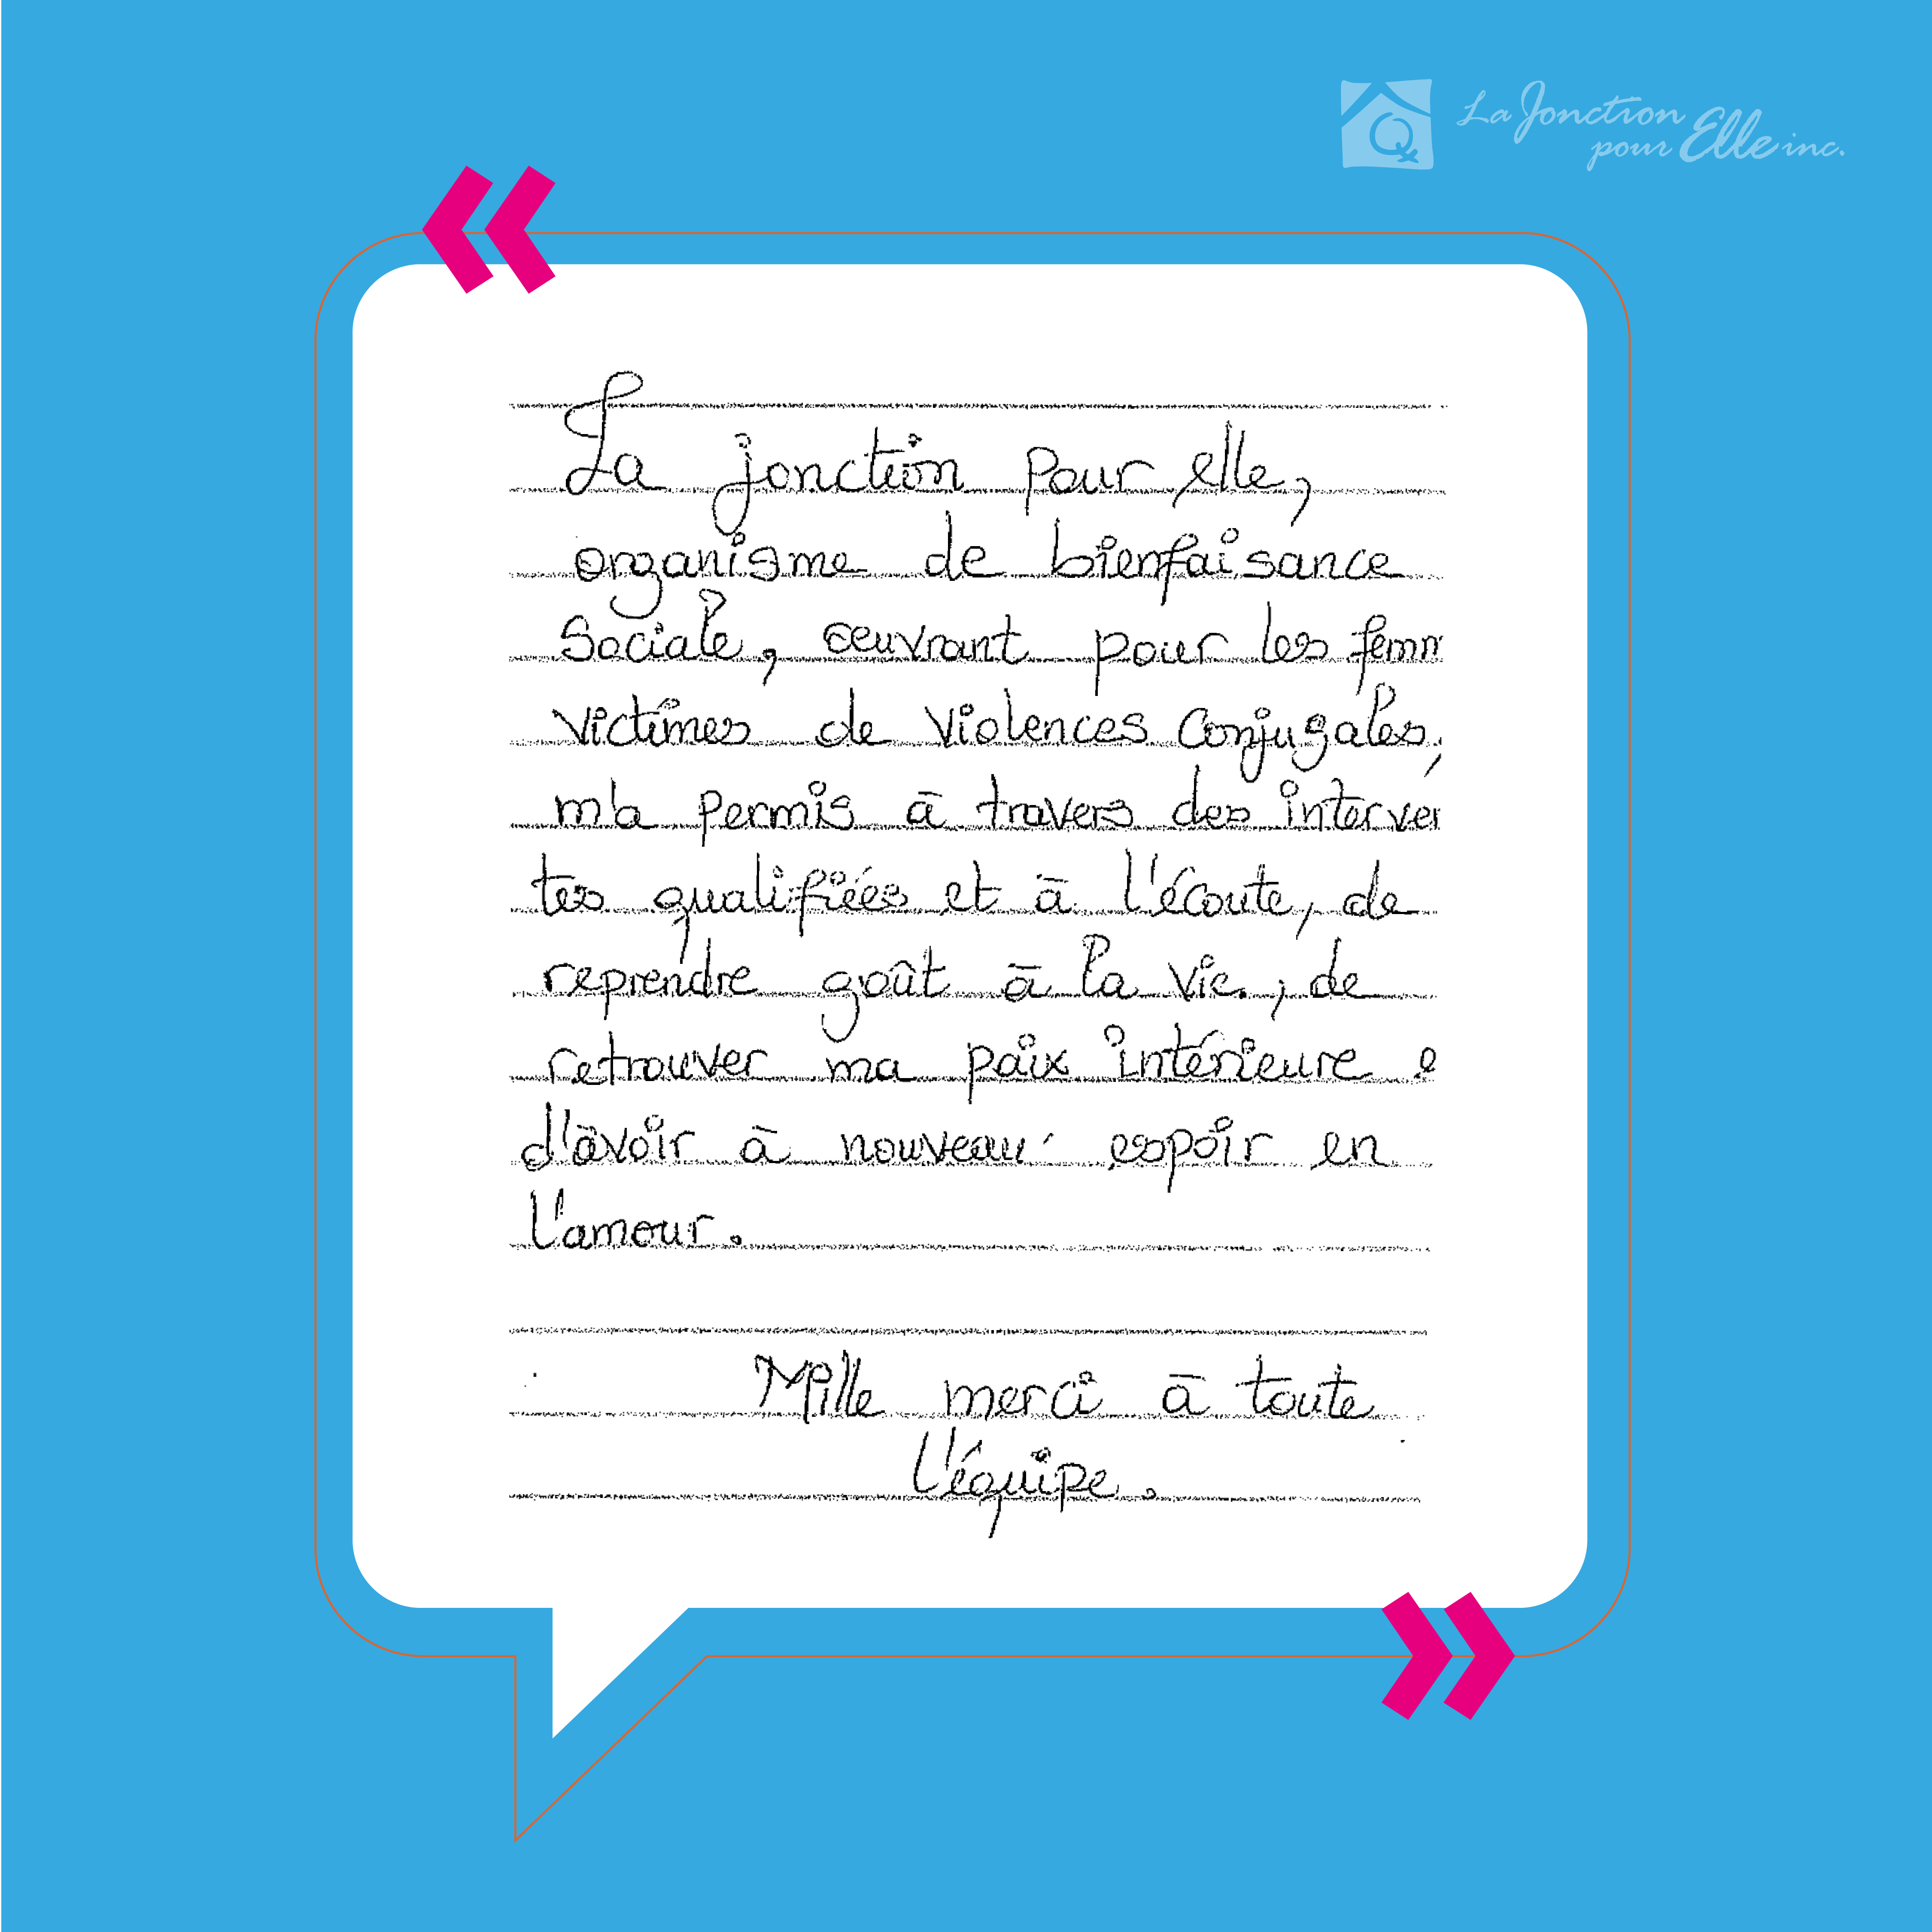 La Jonction
pour Elle inc.
La jonction pour elle,
organisme de bienfaisance
Sociale, œuvrant pour les femm
victimes de violences conjugales,
m'a permis à travers des interven
tes qualifiées et à l'écoute, de
reprendre goût à la vie, de
retrouver ma paix intérieure e
d'avoir à nouveau espoir en
l'amour.
Mille merci à toute
l'équipe.